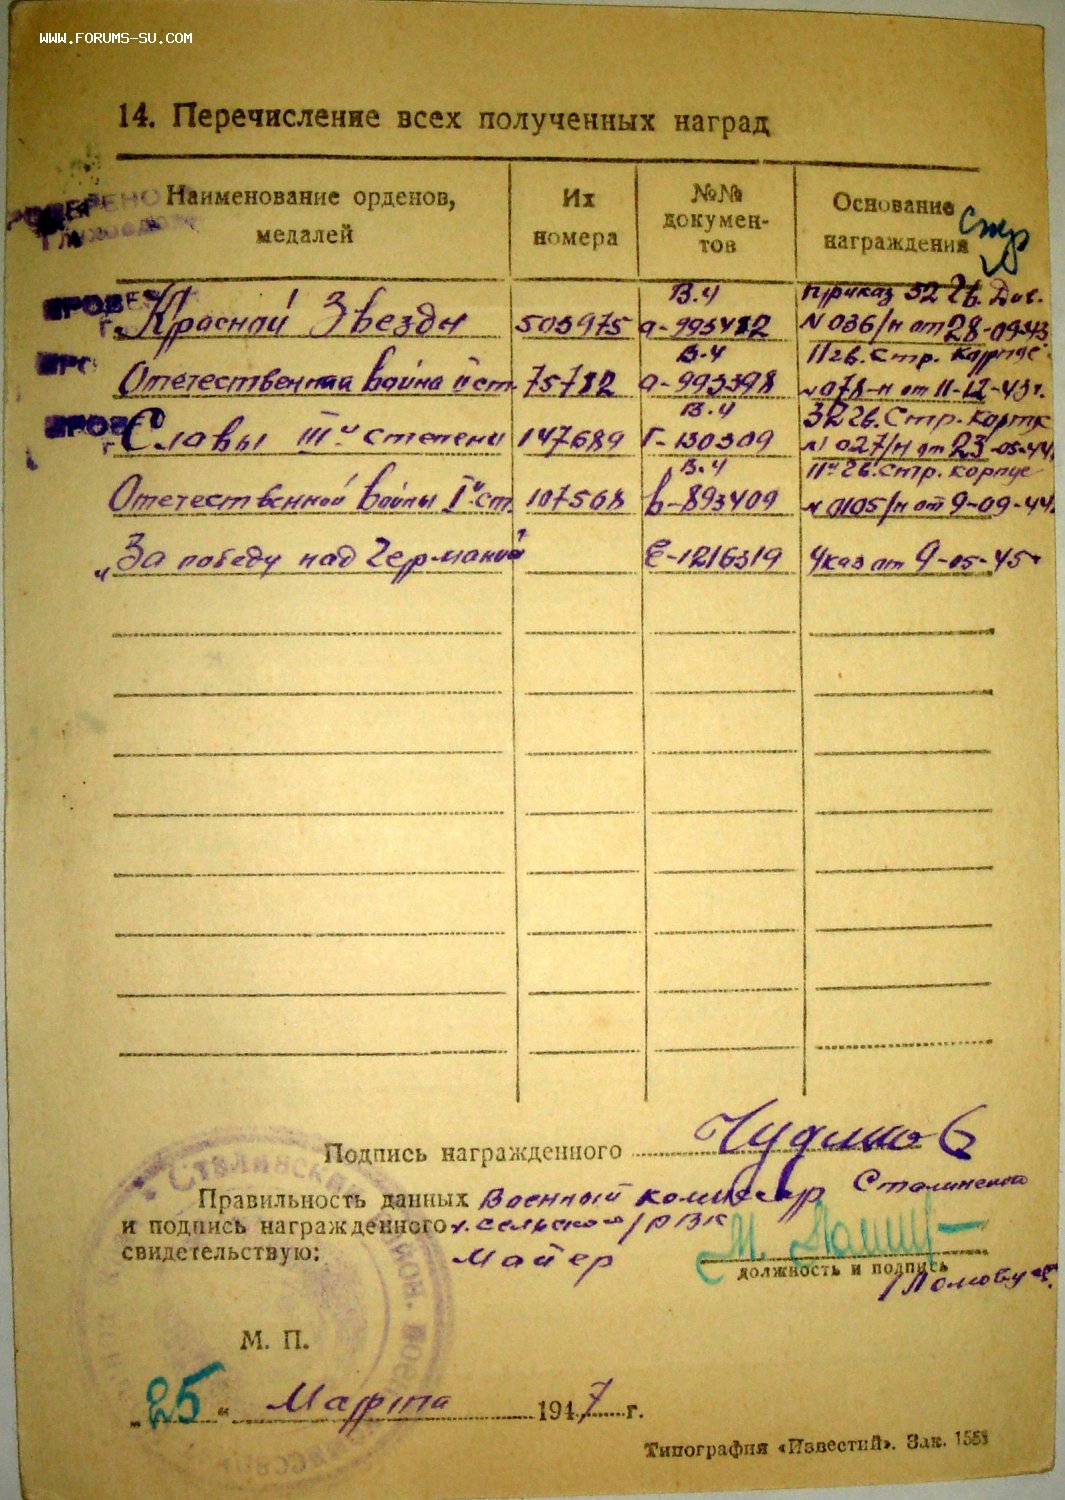 WWW.FORUMS-SU.COM
14. Перечисление всех полученных наград
Наименование орденов, медалей
Их номера
№№ документов
Основание награждения
стр
Красной Звезды 503975 В.Ч а-993482 приказ 32 Гв. Див. N 036/н от 28-09-43
Отечественная война II ст. 75782 В.Ч а-993398 11 гв. стр. корпус N 078-н от 11-12-43 г.
Славы III й степени 147689 В.Ч Г-130309 32 Гв. Стр. N 027/н от 23-05-44
Отечественной войны I й ст. 107568 В.Ч В-893409 11 й Гв. стр. корпус N 0105/н от 9-09-44
„За победу над Германией" Е-1216319 Указ от 9-05-45
Подпись награжденного Чудинов
Правильность данных Военный комиссар Сталинской
и подпись награжденного сельской РВК
свидетельствую: Майер
должность и подпись
М. П.
„25" Марта 1947 г.
Типография «Известий». Зак. 1553